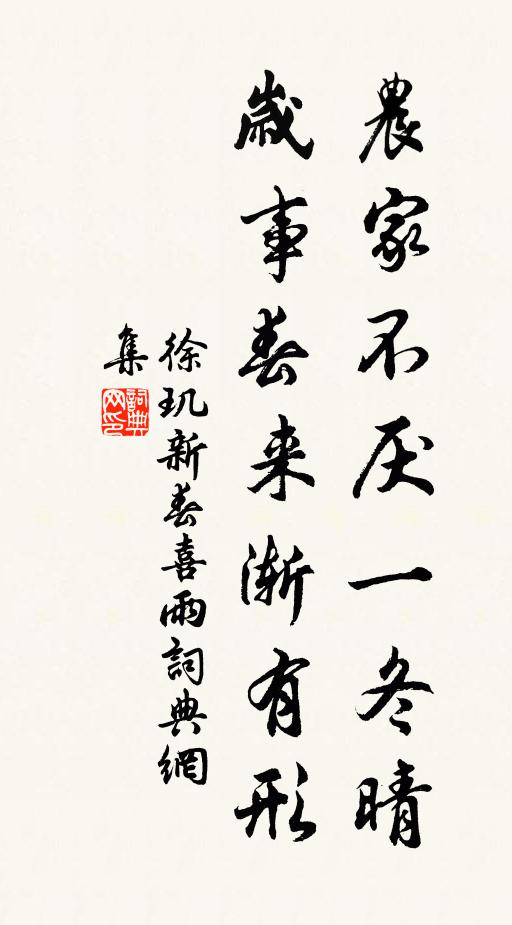 農家不厌一冬晴
歲事春来渐有形
徐玑新春喜雨詞典網
集
詞典网印